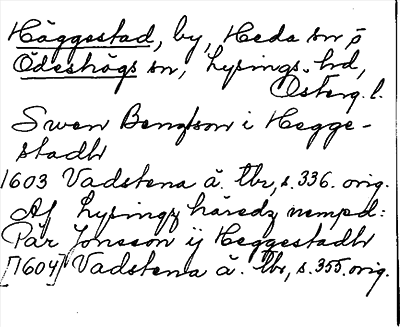 Häggestad, by, Heda sn o
Ödeshögs sn, Lysings hd,
Österg. l.
Swen Bengtson i Hegge-
stadh
1603 Vadstena ä. tbr, s. 336. orig.
Af Lysingz häredz nempd:
Pär Jonsson ij Heggestadh
[1604] Vadstena ä. tbr, s. 355. orig.